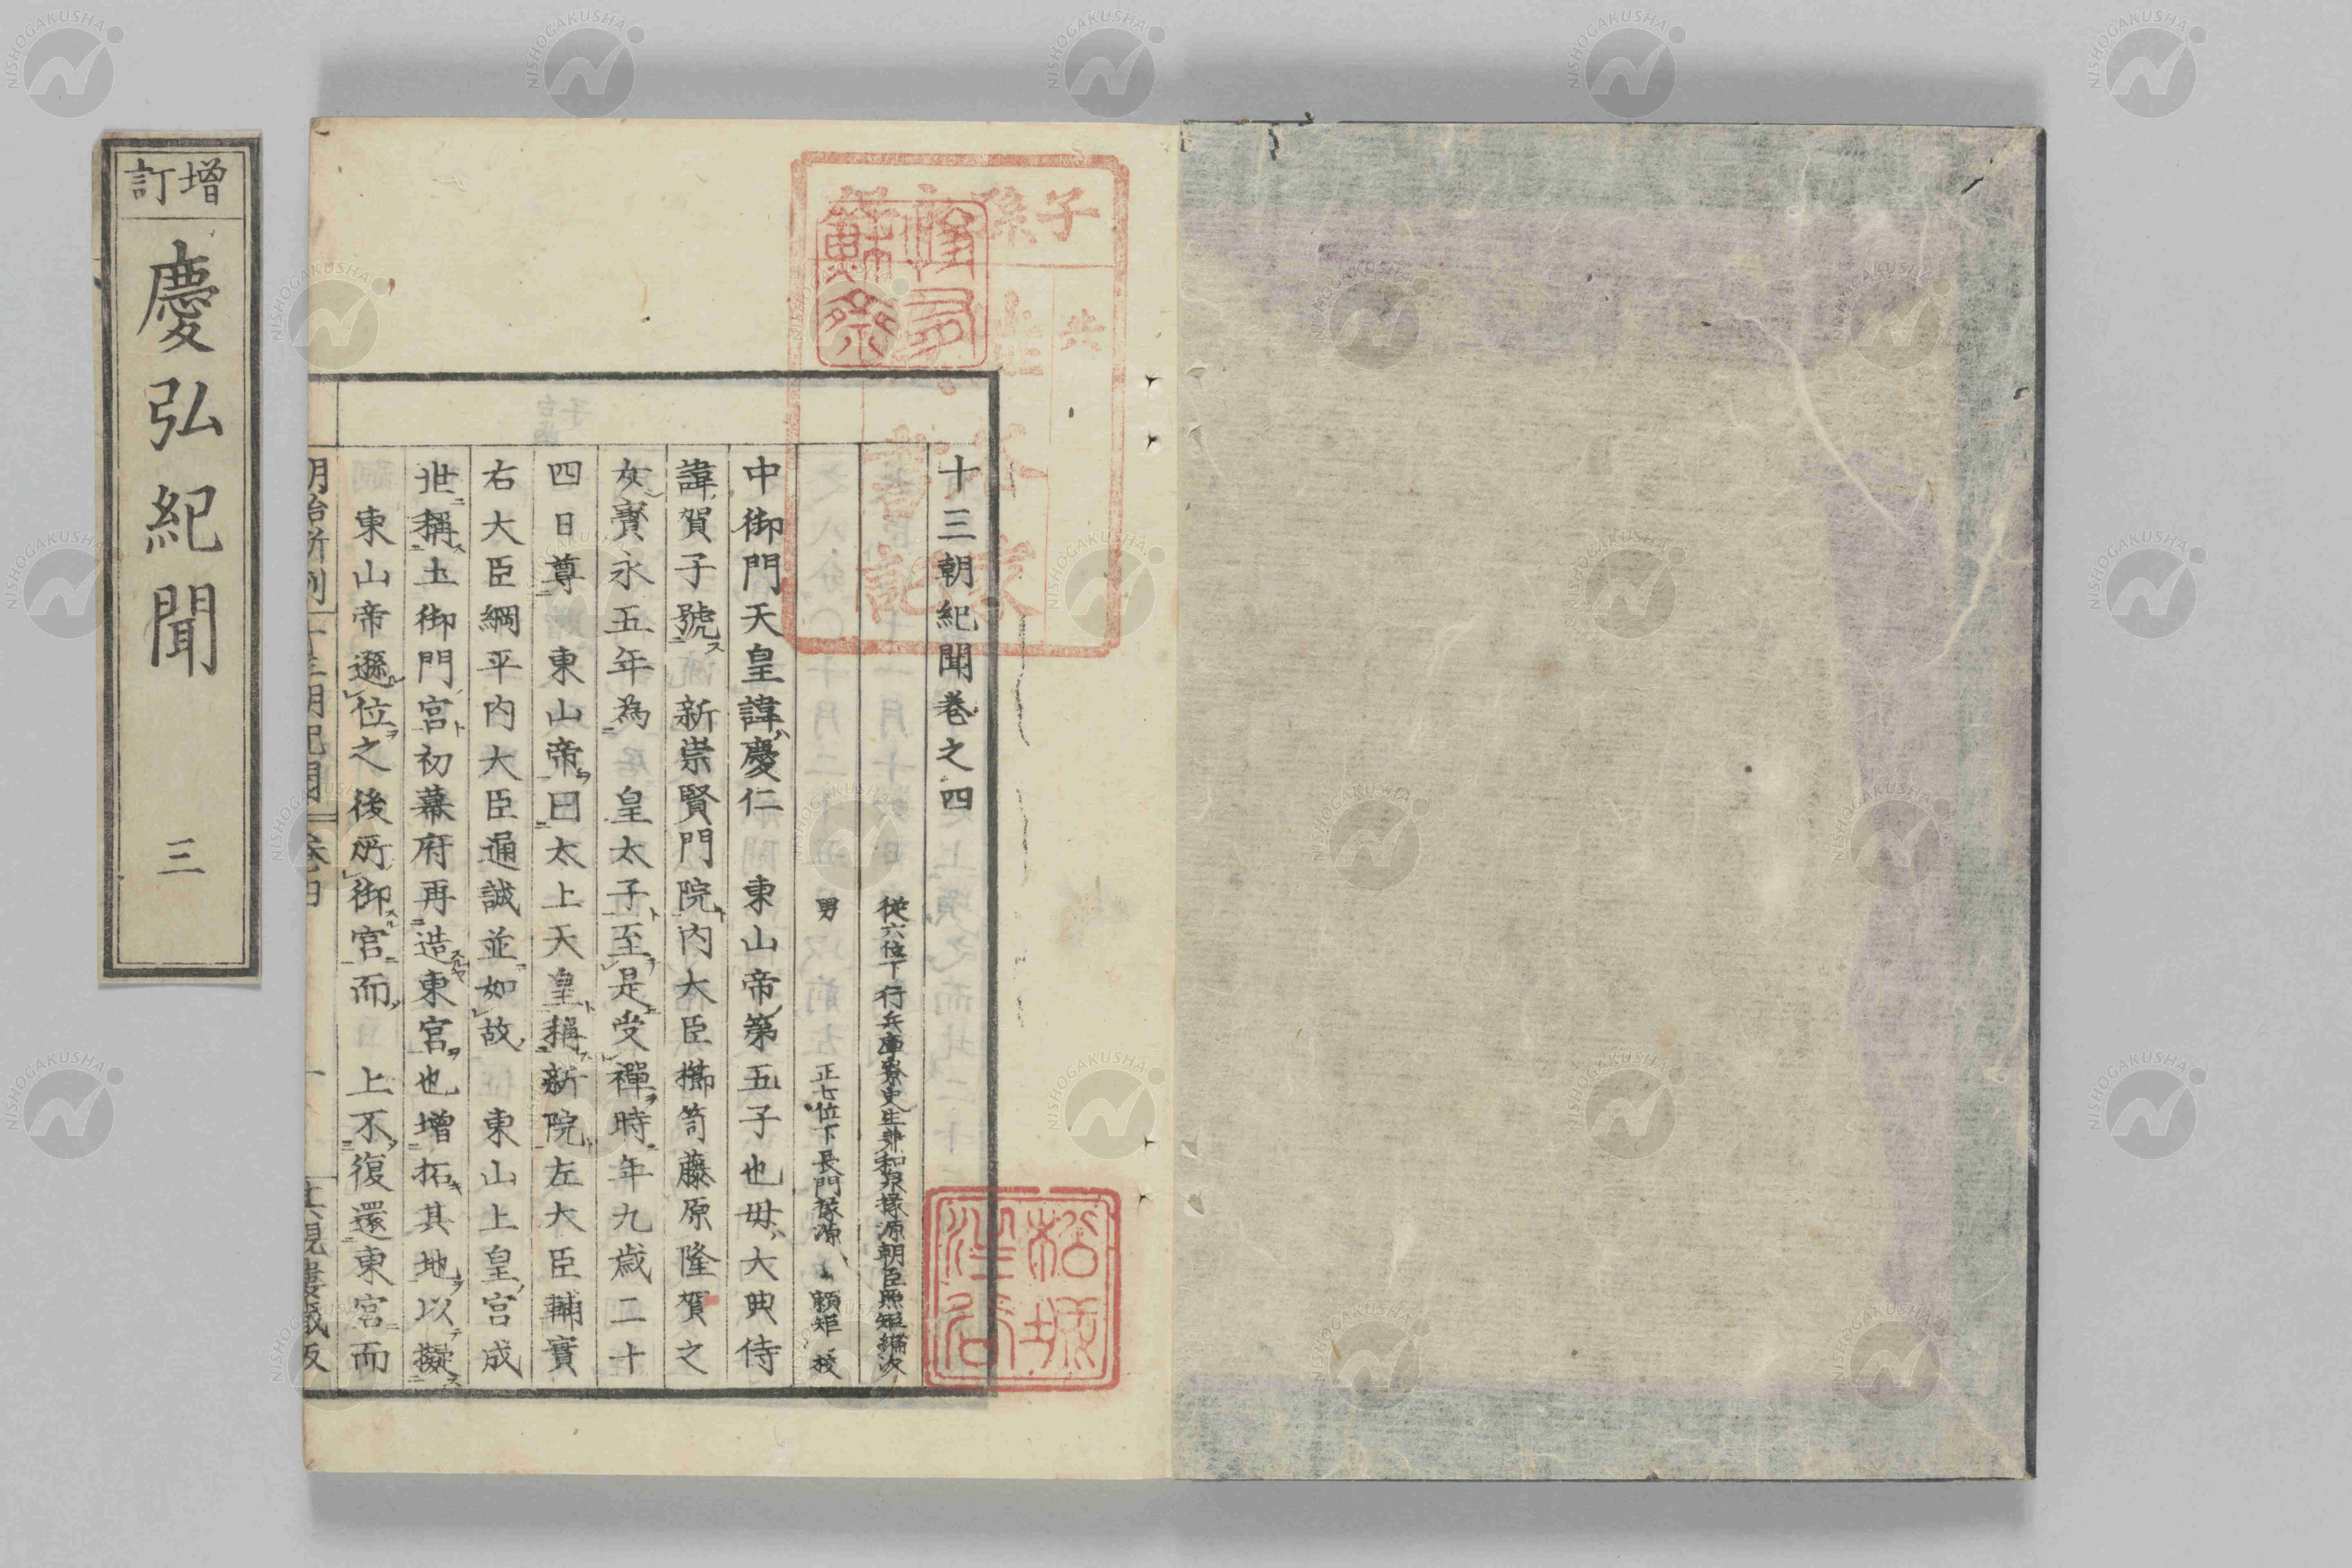 增訂
慶弘紀聞 三
十三朝紀聞卷之四
從六位下行兵庫寮史生兼和泉掾源朝臣照矩編次
男 正七位下長門掾源 頼矩 校
中御門天皇諱慶仁 東山帝第五子也母大典侍
諱賀子號 新崇賢門院內大臣櫛笥藤原隆賀之
女寶永五年為 皇太子至是受禪時年九歲二十
四日尊 東山帝曰太上天皇稱新院左大臣輔實
右大臣綱平內大臣通誠並如故 東山上皇宮成
世稱土御門宮初幕府再造東宮也增拓其地以擬
東山帝遜位之後所御宮而 上不復還東宮而
明治新刻 十三朝紀聞 卷四 一
子孫
共
松坂
NISHOGAKUSHA